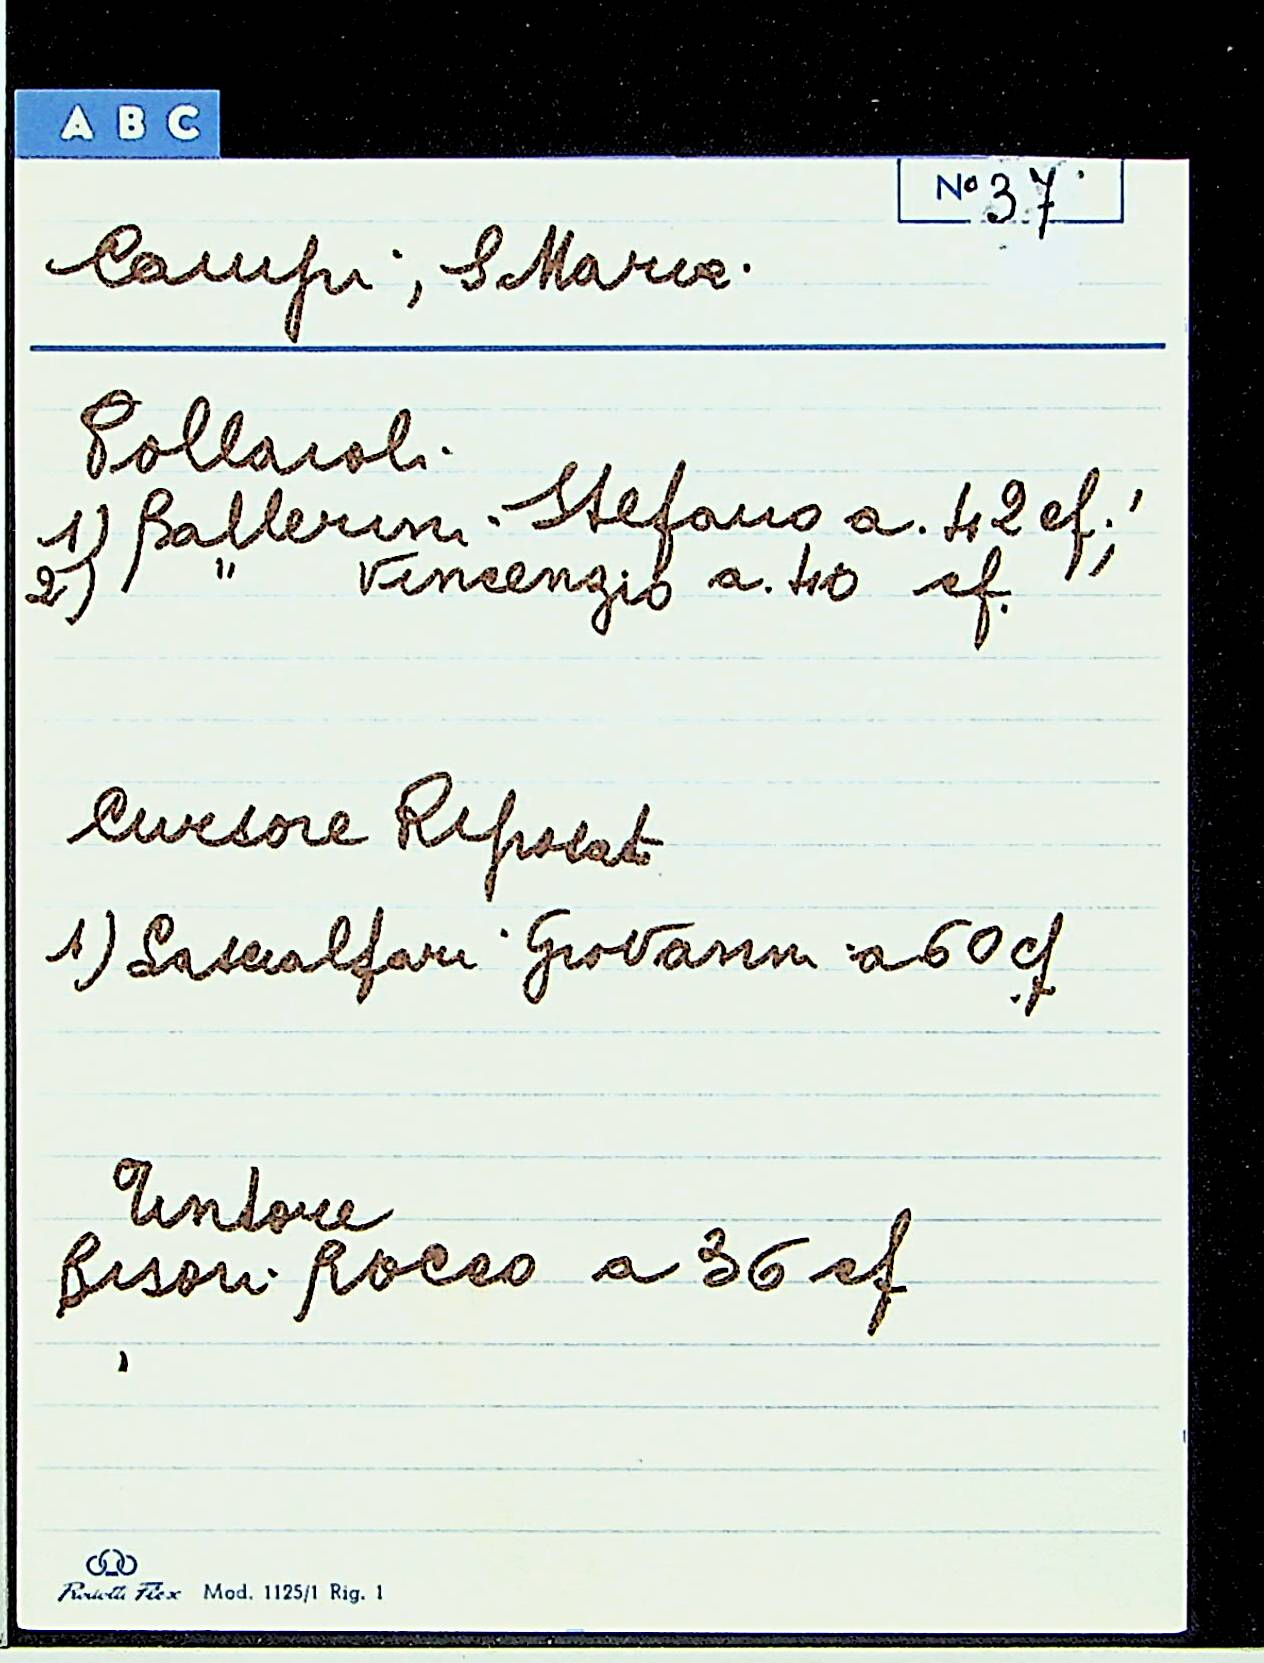 A B C
No 37
Campi, S Maria.
Pollaioli.
1) Ballerini. Stefano a. 42 cf.;
2) " Vincenzio a. 40 cf.
Cursore Riposato
1) Lascialfari Giovanni a 60 cf
Tintore
Bisori. Rocco a 36 cf
Mod. 1125/1 Rig. 1